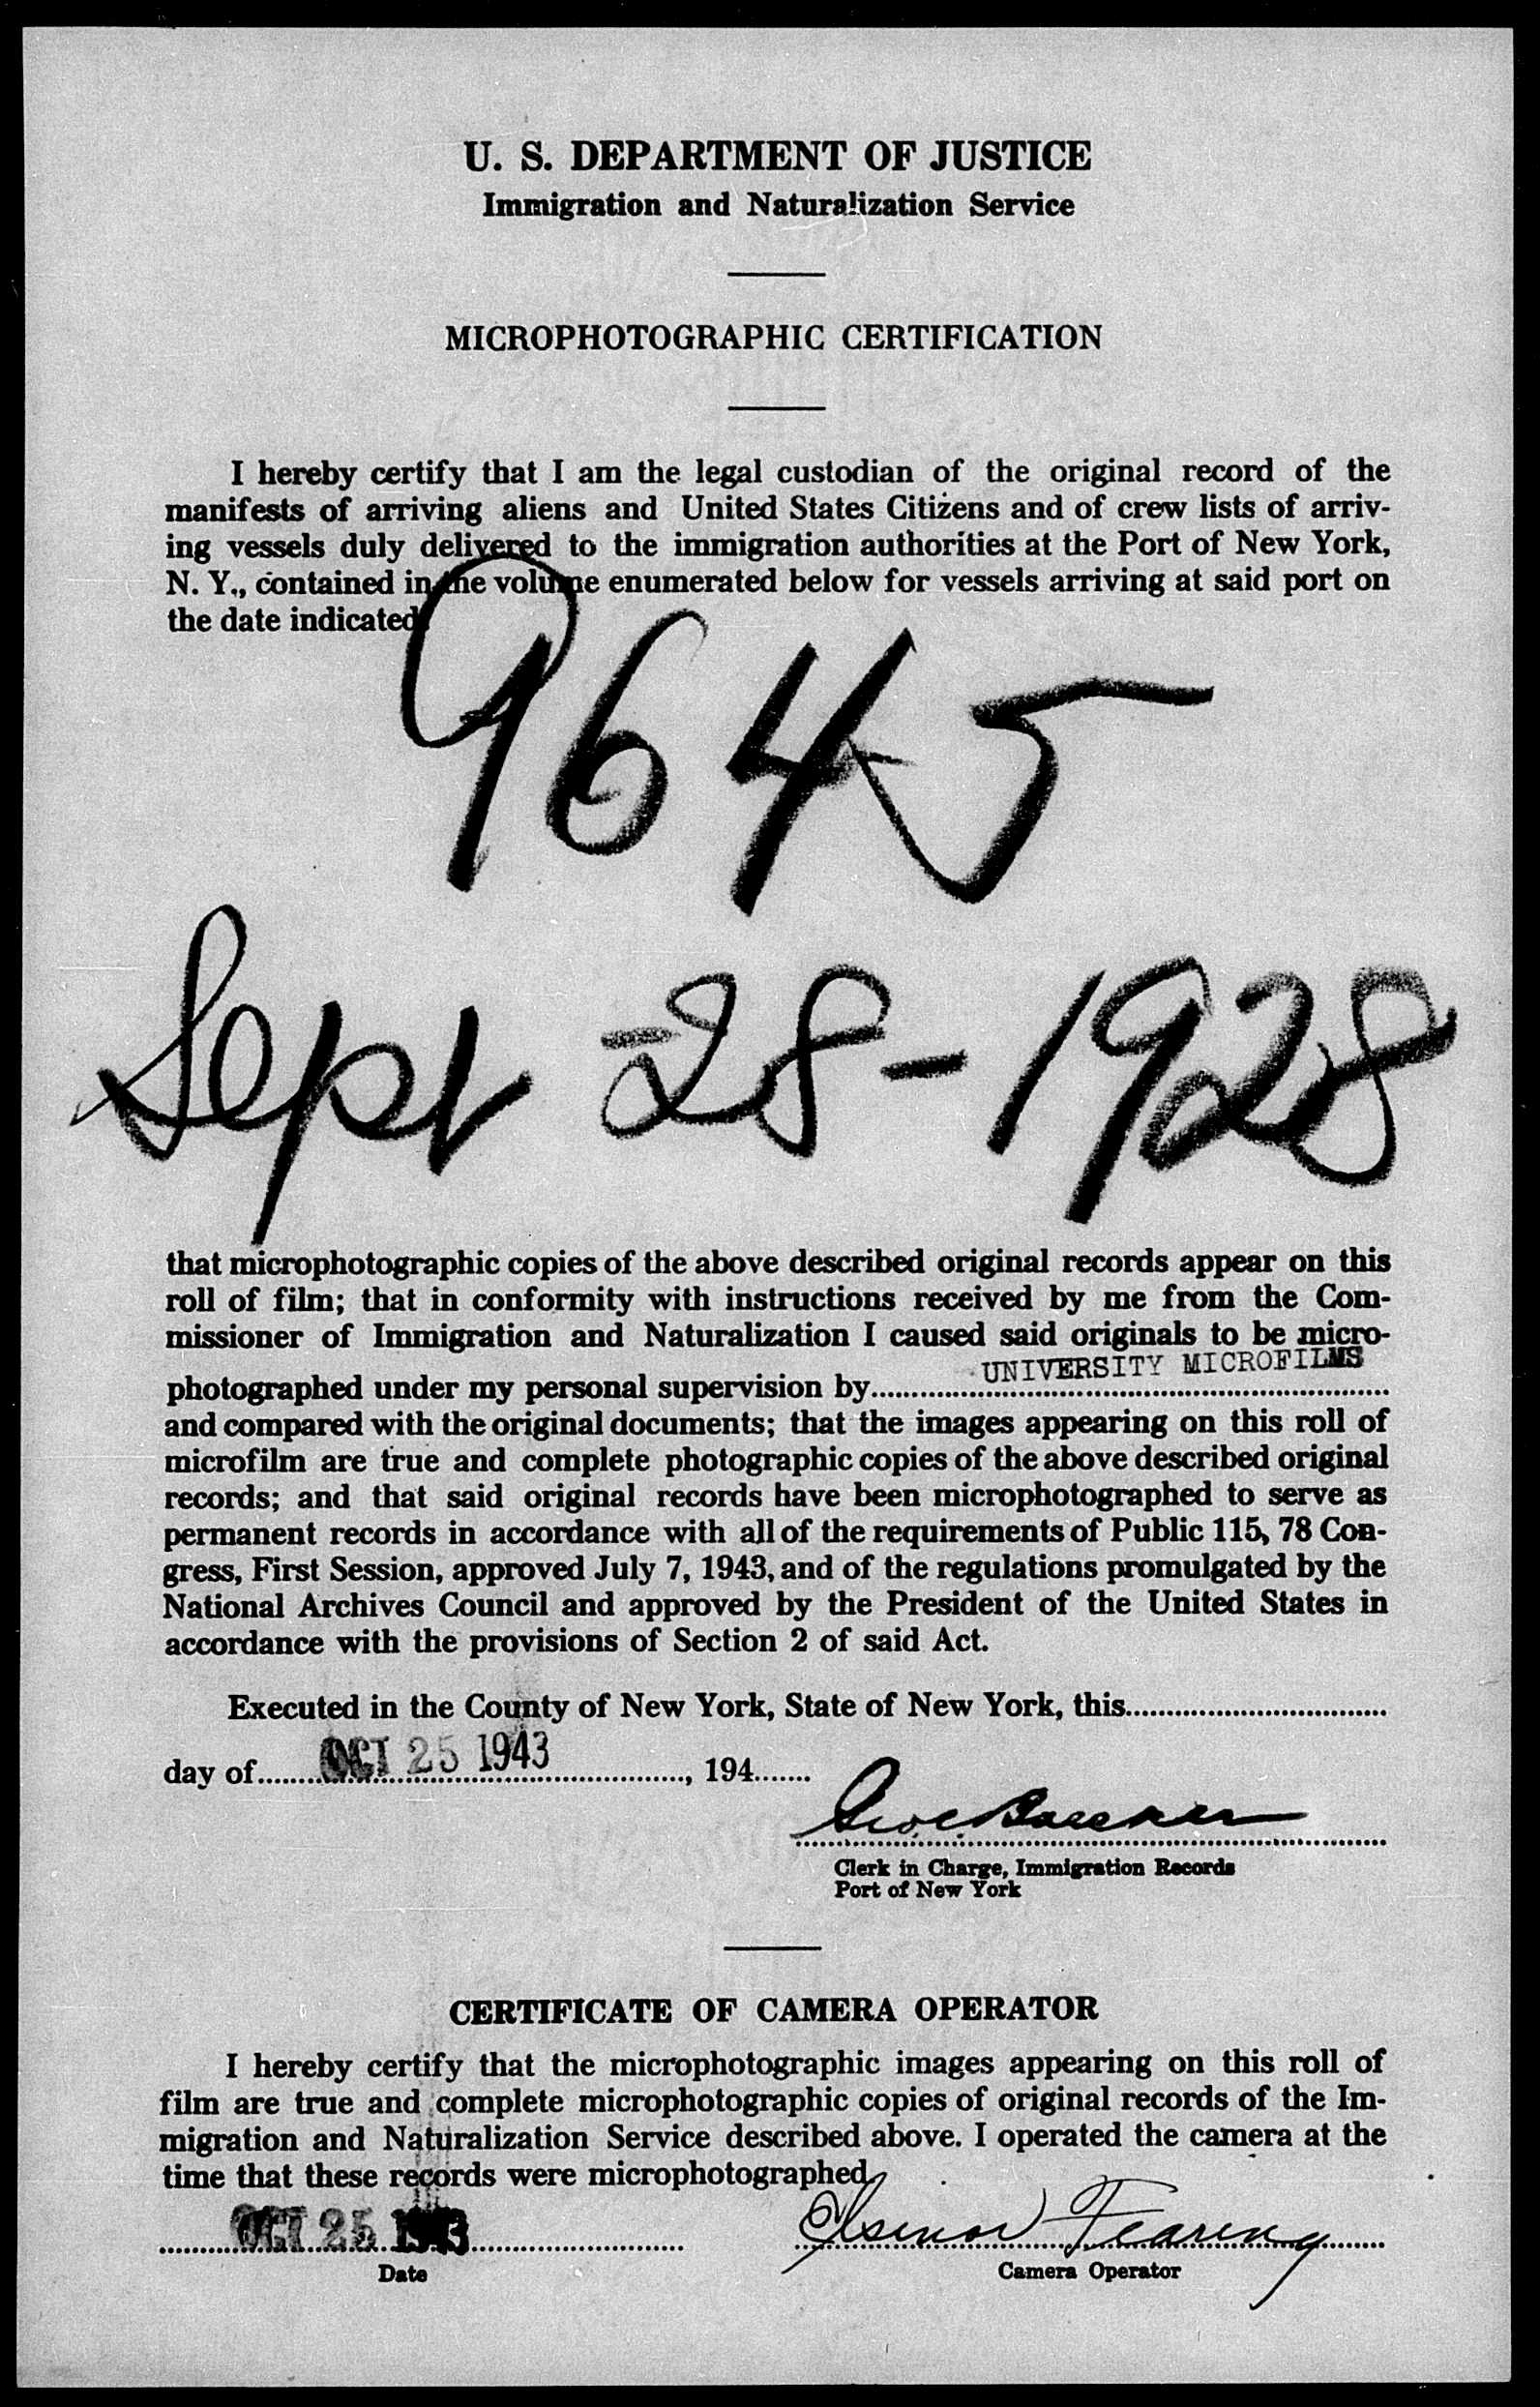 U. S. DEPARTMENT OF JUSTICE
Immigration and Naturalization Service
MICROPHOTOGRAPHIC CERTIFICATION
I hereby certify that I am the legal custodian of the original record of the
manifests of arriving aliens and United States Citizens and of crew lists of arriv-
ing vessels duly delivered to the immigration authorities at the Port of New York,
N. Y., contained in the volume enumerated below for vessels arriving at said port on
the date indicated
9645
Sept 28-1928
that microphotographic copies of the above described original records appear on this
roll of film; that in conformity with instructions received by me from the Com-
missioner of Immigration and Naturalization I caused said originals to be micro-
UNIVERSITY MICROFILMS
photographed under my personal supervision by
and compared with the original documents; that the images appearing on this roll of
microfilm are true and complete photographic copies of the above described original
records; and that said original records have been microphotographed to serve as
permanent records in accordance with all of the requirements of Public 115, 78 Con-
gress, First Session, approved July 7, 1943, and of the regulations promulgated by the
National Archives Council and approved by the President of the United States in
accordance with the provisions of Section 2 of said Act.
Executed in the County of New York, State of New York, this
day of OCT 25 1943, 194
Clerk in Charge, Immigration Records
Port of New York
CERTIFICATE OF CAMERA OPERATOR
I hereby certify that the microphotographic images appearing on this roll of
film are true and complete microphotographic copies of original records of the Im-
migration and Naturalization Service described above. I operated the camera at the
time that these records were microphotographed
OCT 25 1943 Fearing
Date Camera Operator